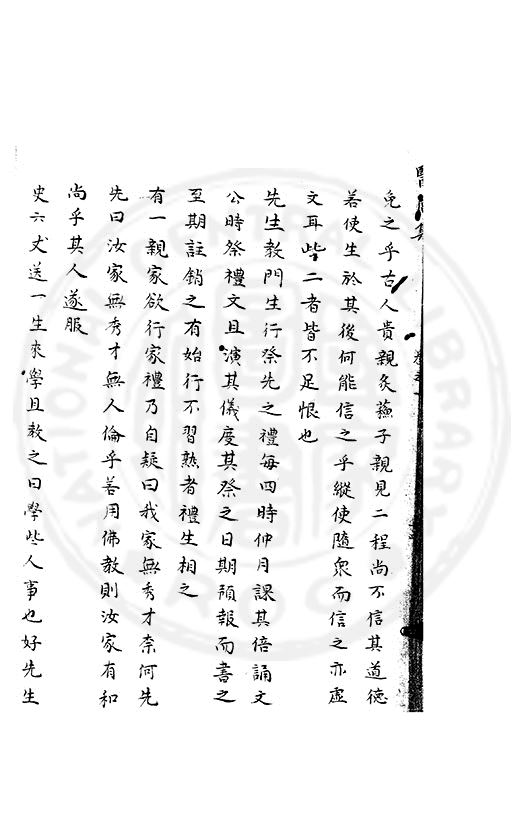 免之乎古人貴親炙蘓子親見二程尚不信其道徳
若使生於其後何能信之乎縱使隨衆而信之亦虚
文耳些二者皆不足恨也
先生教門生行祭先之禮每四時仲月課其倍誦文
公時祭禮文且演其儀度其祭之日期預報而書之
至期註銷之有始行不習熟者禮生相之
有一親家欲行家禮乃自疑曰我家無秀才柰何先
先曰汝家無秀才無人倫乎善用佛教則汝家有和
尚乎其人遂服
史六丈送一生來學且教之曰學些人事也好先生